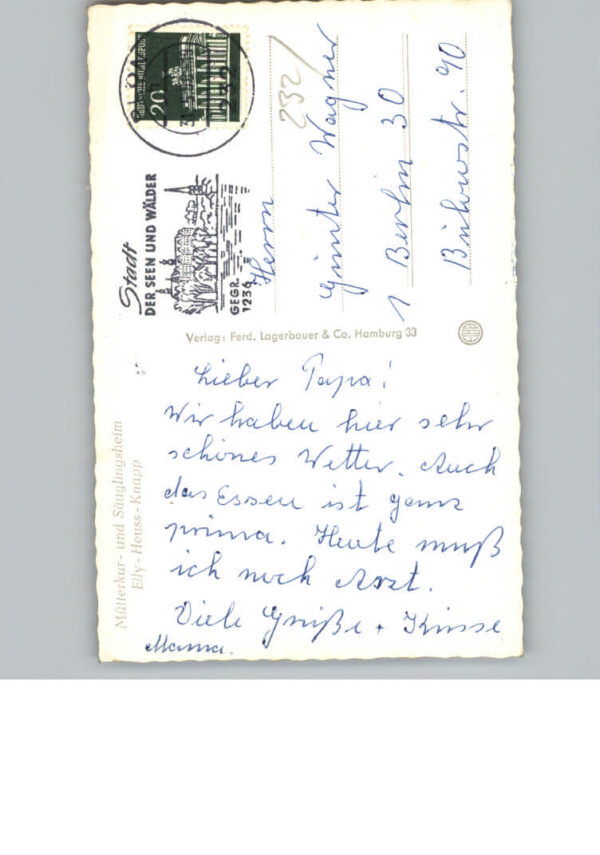 DEUTSCHE BUNDESPOST
20
Stadt
DER SEEN UND WÄLDER
GEGR.
1236
232/
Herrn
Günter Wagner
1 Berlin 30
Bülowstr. 90
Verlag: Ferd. Lagerbauer & Co. Hamburg 33
Mütterkur- und Säuglingsheim
Elly-Heuss-Knapp
Lieber Papa!
Wir haben hier sehr
schönes Wetter. Auch
das Essen ist ganz
prima. Heute muß
ich noch Arzt.
Viele Grüße + Küsse
Mama.